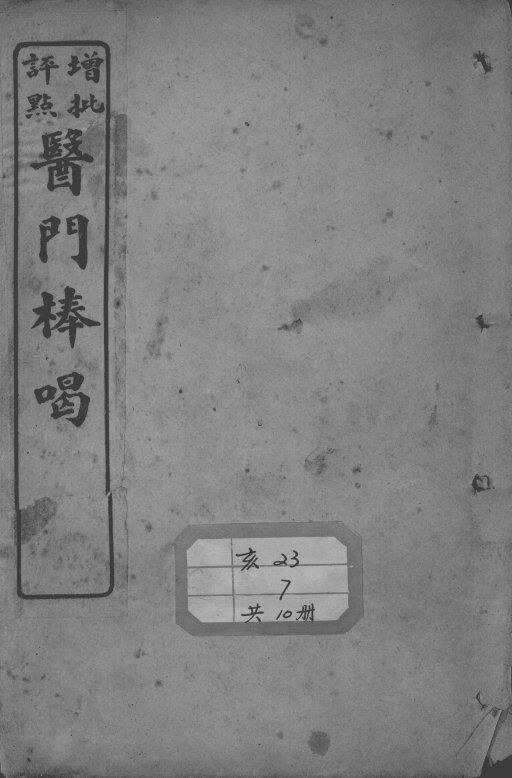 增批
評點
醫門棒喝
亥 23
7
共 10册